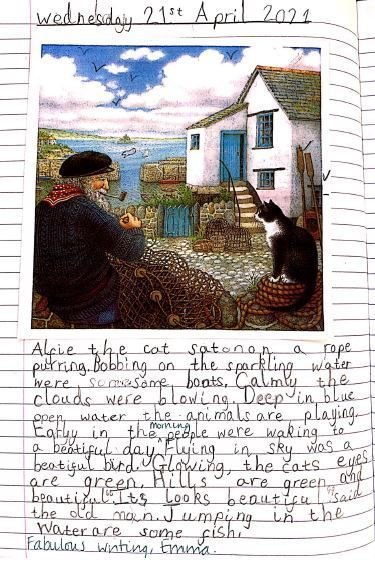 Wednesday 21st April 2021
Alfie the cat sat on on a rope
purring. Bobbing on the sparkling water
were some some boats. Calmy the
clouds were blowing. Deep in blue
open water the animals are playing.
Earlyy in the morning people were waking to
a beatiful day. Flying in sky was a
beatiful bird. Glowing, the cats eyes
are green. Hills are green and
beautiful. "Its looks beautiful" said
the old man. Jumping in the
Water are some fish.
Fabulous writing, Emma.